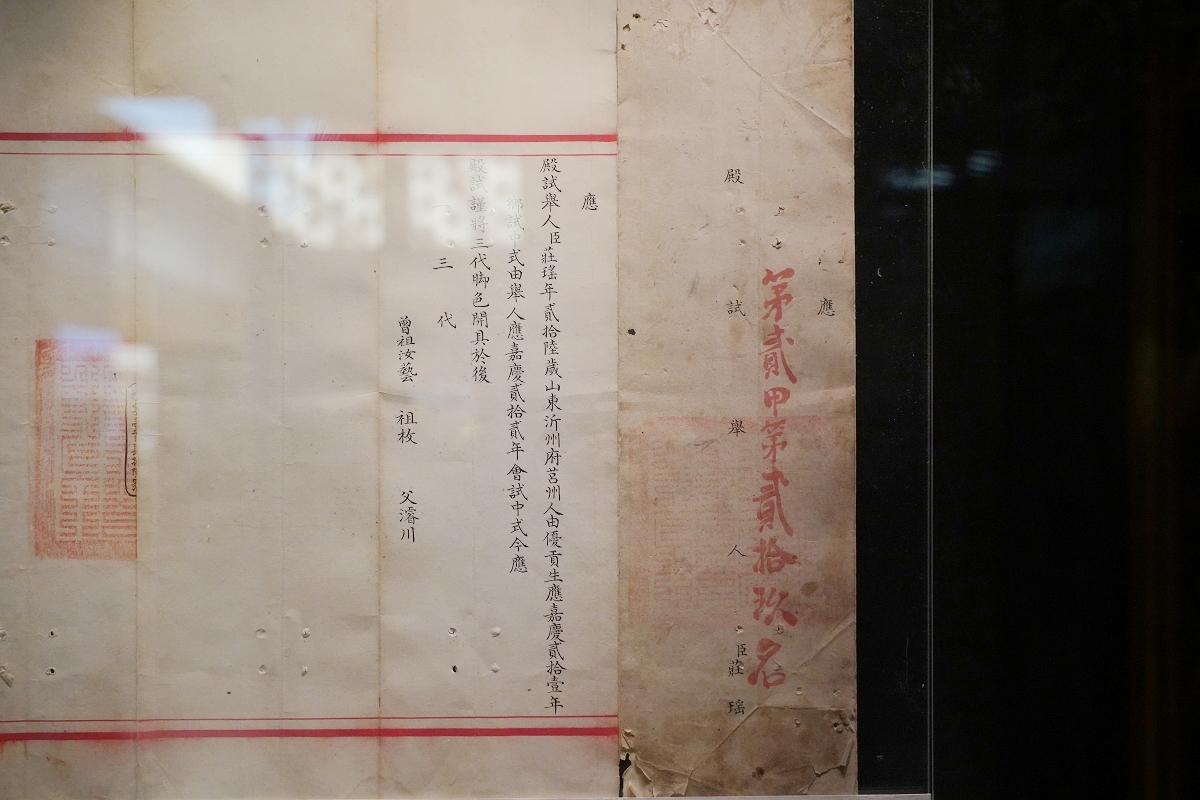 應
第貳甲第貳拾玖名
殿試舉人臣莊瑤
應
殿試舉人臣莊瑤年貳拾陸歲山東沂州府莒州人由優貢生應嘉慶貳拾壹年
鄉試中式由舉人應嘉慶貳拾貳年會試中式今應
殿試謹將三代脚色開具於後
三代
曾祖汝藝 祖枚 父濬川